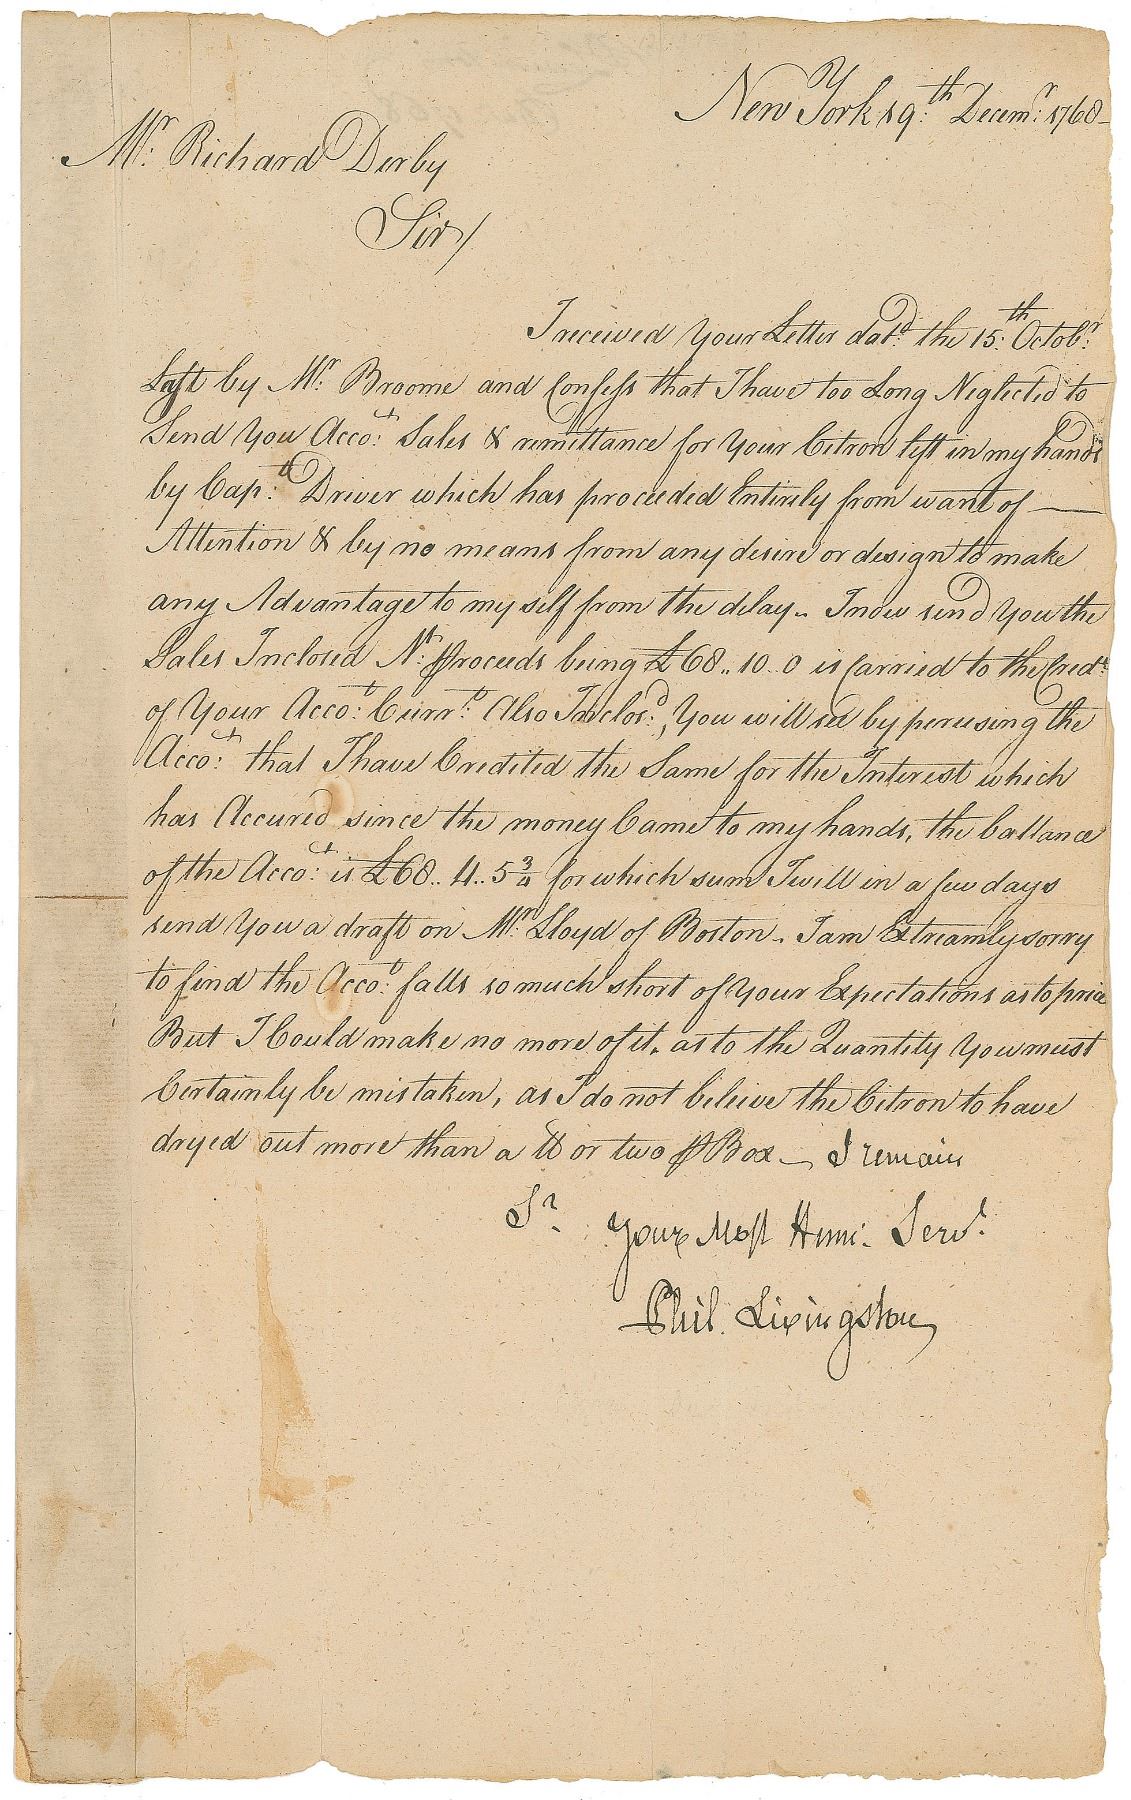 New York 19.th Decem.r 1768
Mr. Richard Derby
Sir/
I received Your Letter dat.d the 15.th Octob.r
Last by Mr. Broome and Confess that I have too Long Neglected to
Send You Acco.t Sales & remittance for Your Citron left in my hands
by Cap.t Driver which has proceeded Entirely from want of —
Attention & by no means from any desire or design to make
any Advantage to my self from the delay. I now send You the
Sales Inclosed N.t Proceeds being £68..10..0 is Carried to the Cred.t
of Your Acco.t Curr.t Also Inclos.d, You will see by perusing the
Acco.t that I have Credited the Same for the Interest which
has Accured since the money Came to my hands, the ballance
of the Acco.t is £68..4..5 3/4 for which sum I will in a few days
send You a draft on Mr. Lloyd of Boston. I am Extreamly sorry
to find the Acco.t falls so much short of Your Expectations as to price
But I Could make no more of it. as to the Quantity You must
Certainly be mistaken, as I do not beleive the Citron to have
dryed out more than a ℔ or two ⅌ Box — I remain
S.r Your Most Hum. Serv.t
Phil. Livingston